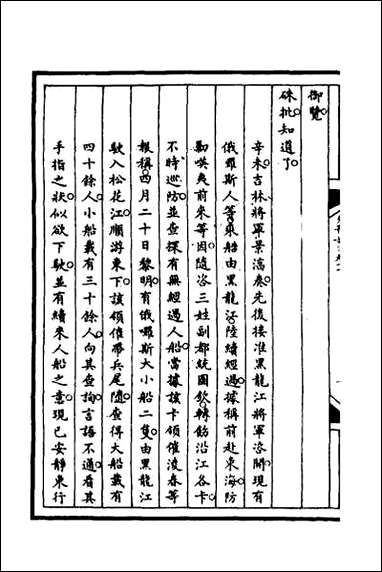 御覽
硃批知道了
辛未吉林將軍景淳奏先後接准黑龍江將軍咨開現有
俄羅斯人等乘船由黑龍江陸續經過據稱前赴東海防
勦暎夷前來等因隨咨三姓副都統圖欽轉飭沿江各卡
不時巡防並查探有無經過人船當據該卡領催淩春等
報稱四月二十日黎明有俄囉斯大小船二隻由黑龍江
駛入松花江順游東下該領催帶兵尾隨查得大船載有
四十餘人小船載有三十餘人向其查詢言語不通看其
手指之狀似欲下駛並有續來人船之意現已安靜東行